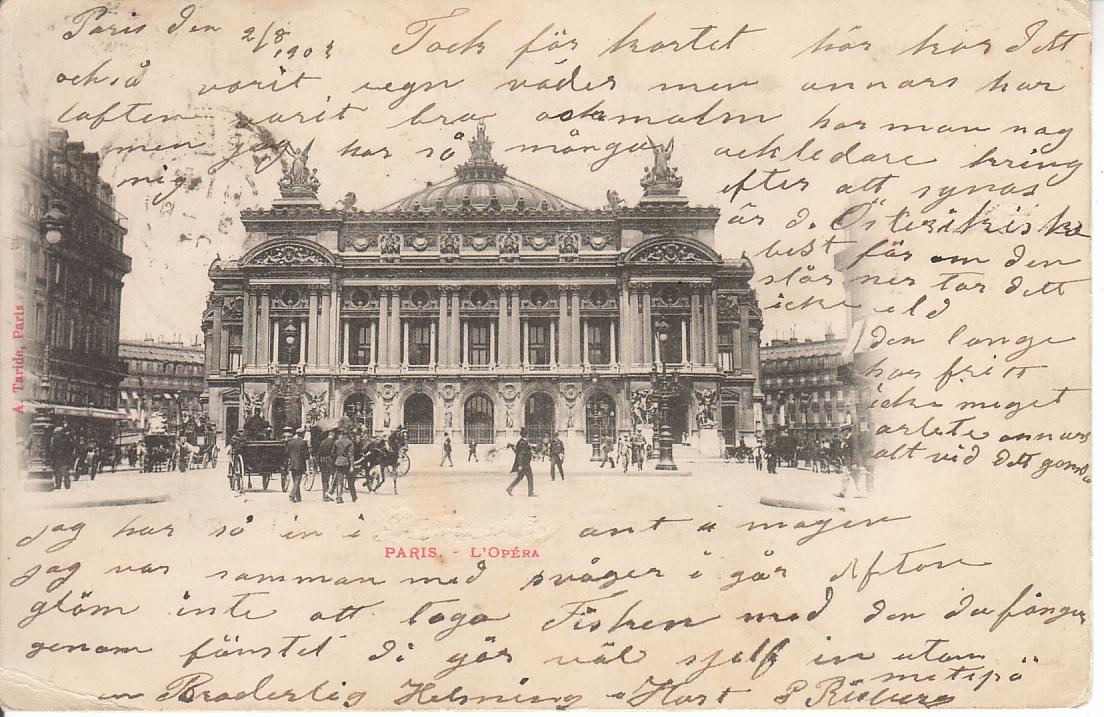 Paris den 2/8 1903 Tack för kortet här har dett
också varit regn väder men annars har
luften varit bra har man nog
men jag har så många ackledare kring
mig efter att synas
är d. Österikiska
best för om den
slår ner tar dett
icke eld
den lange
har fritt
icke meget
arbete annars
alt vid dett gamla
A. Taride, Paris
jag har så in i magen
PARIS. - L'OPÉRA
jag var samman med svåger i går Afton
glöm inte att taga Fisken med den du fånger
genom fönstet di går väl sjelf in utan
metspö
en Broderlig Helsning